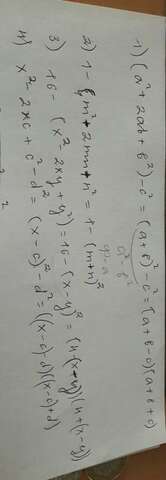 1) (a² + 2ab + b²) - c² = (a + b)² - c² = (a + b - c)(a + b + c)
2) 1 - (m² + 2mn + n²) = 1 - (m+n)²
3) 16 - (x² - 2xy + y²) = 16 - (x - y)² = (4 - (x - y))(4 + (x - y))
4) x² - 2xc + c² - d² = (x - c)² - d² = ((x - c) - d)((x - c) + d)